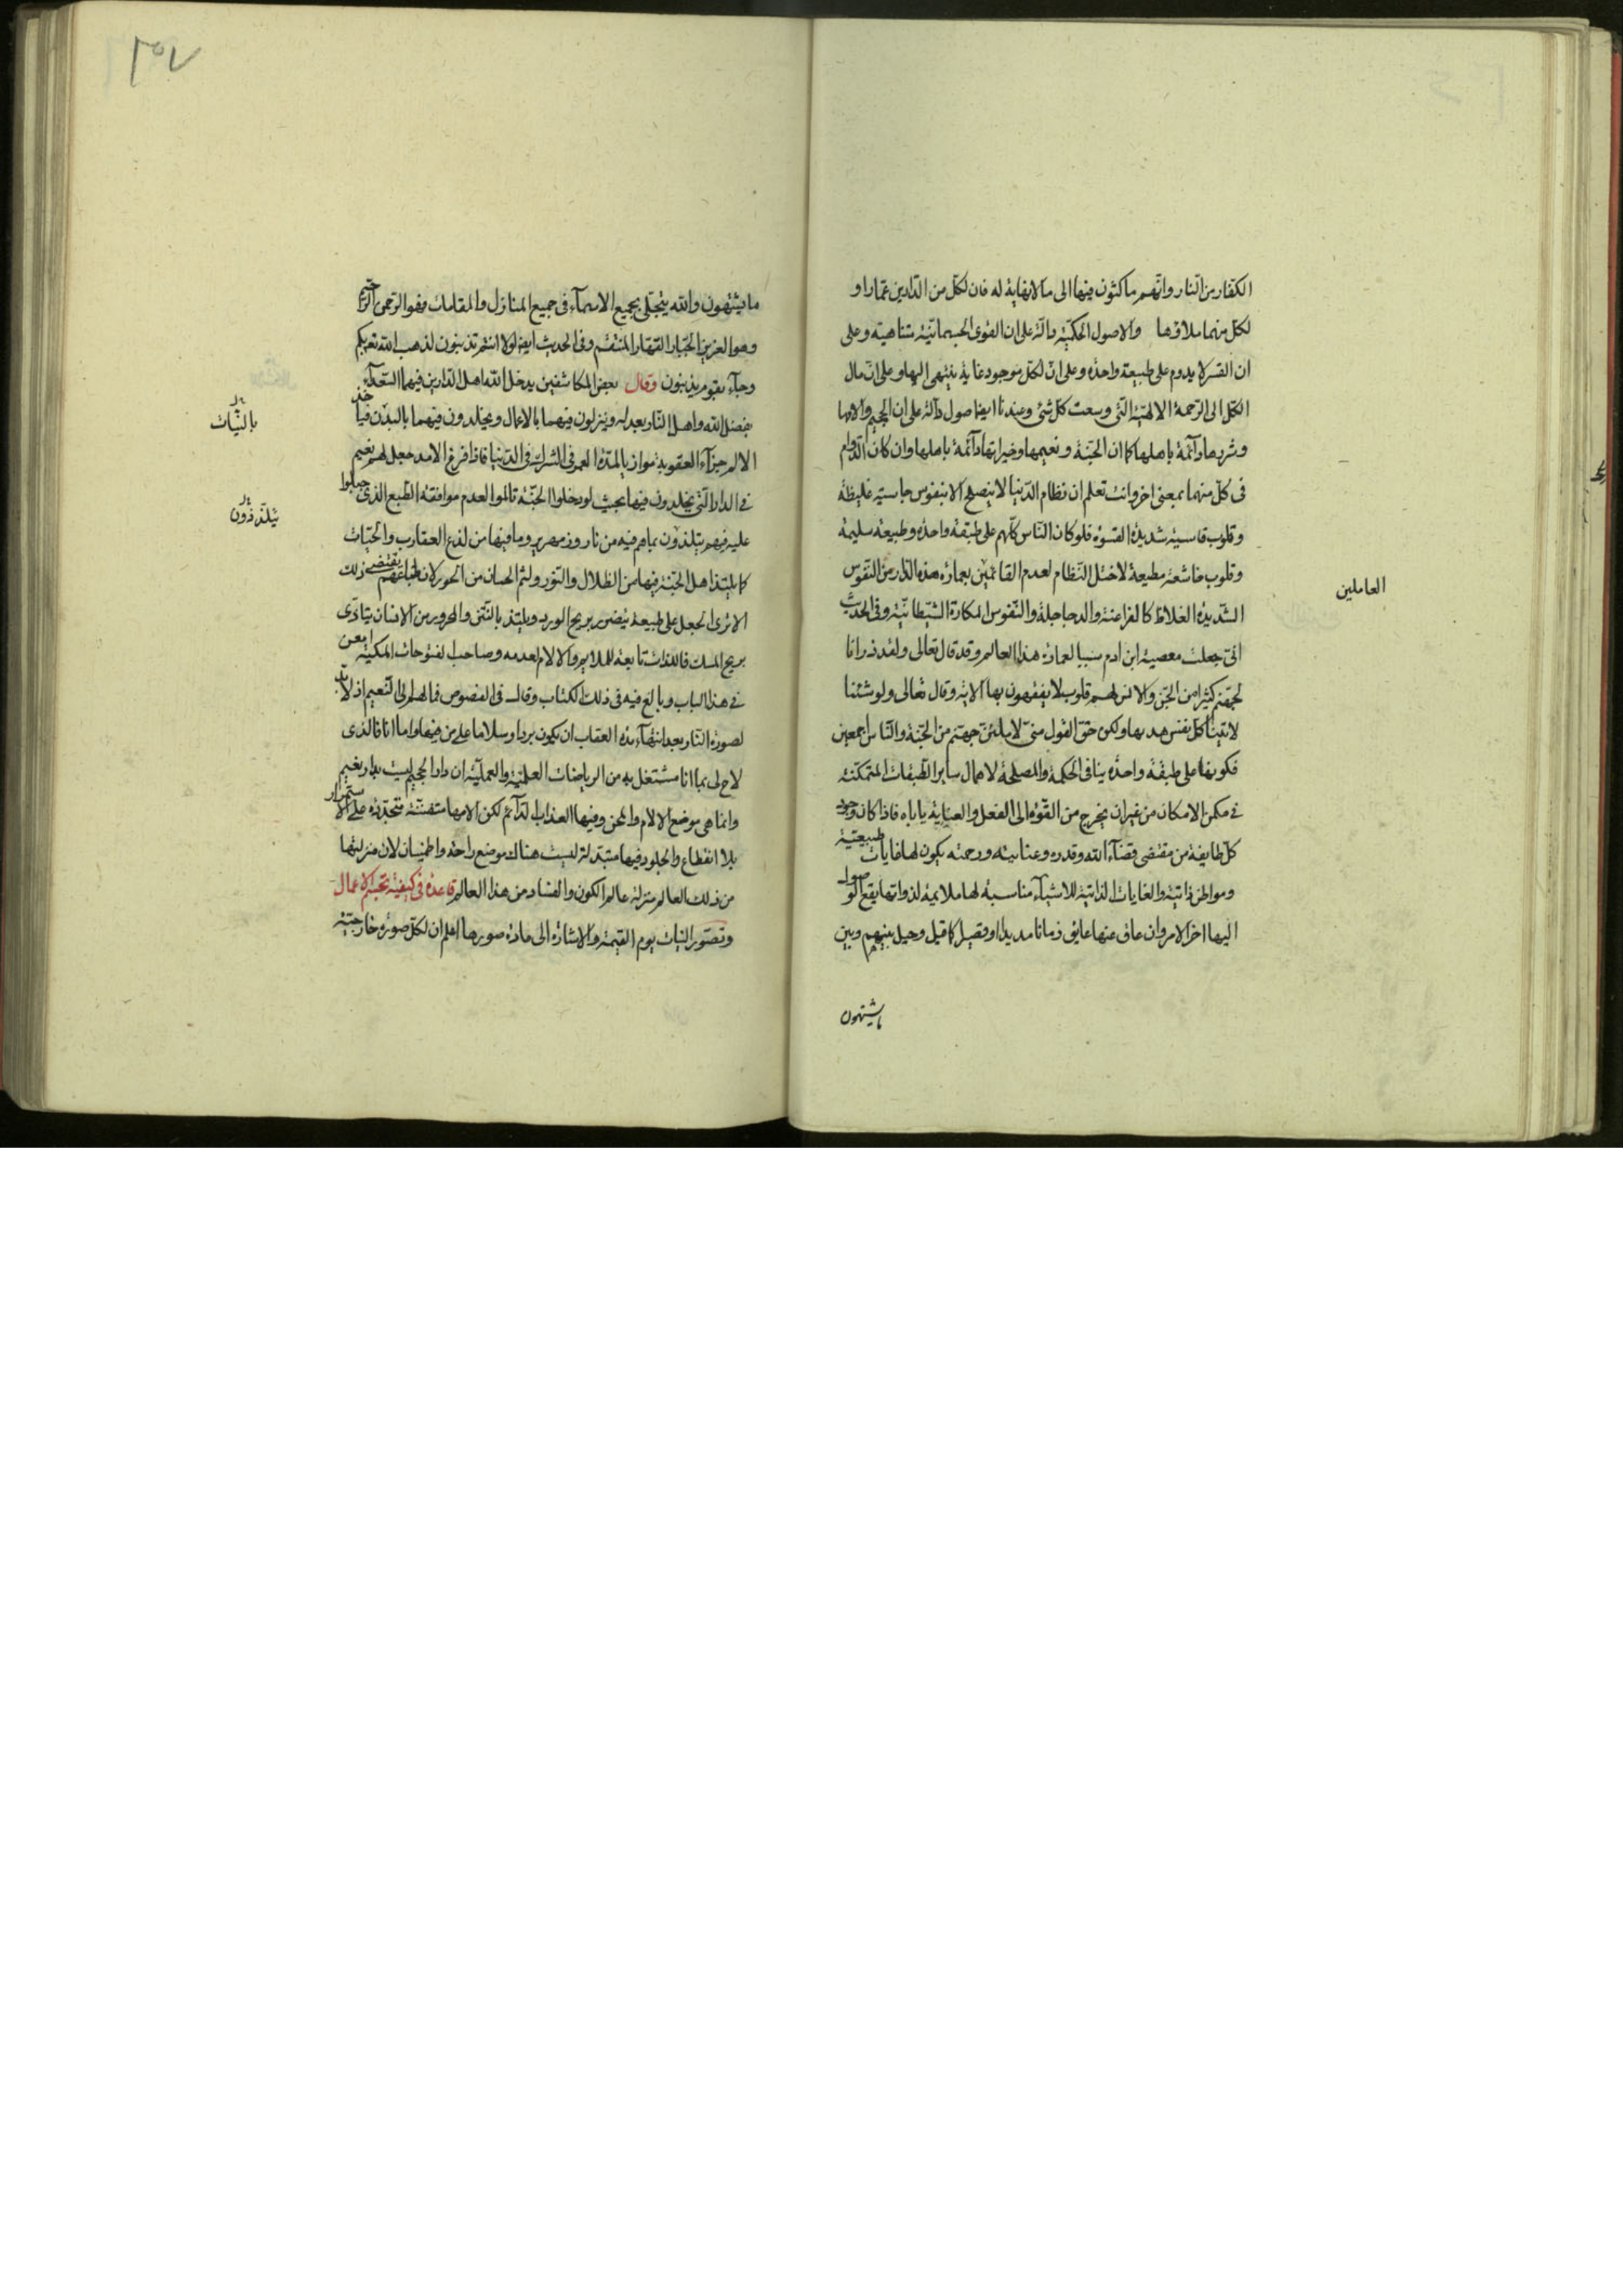 الكفار من النار وانهم ماكثون فيها الى ما لا نهاية له فان لكل من الدارين عمارا و
لكل منهما ملاؤها والاصول الحكمية دالة على ان القوى الجسمانية متناهية وعلى
ان القسر لا يدوم على طبيعة واحدة وعلى ان لكل موجود غاية ينتهى اليها وعلى ان مال
الكل الى الرحمة الالهية التى وسعت كل شئ وعندنا ايضا اصول دالة على ان الجحيم والامها
وشرورها دائمة باهلها كما ان الجنة ونعيمها وخيراتها دائمة باهلها وان كان الدوام
فى كل منهما بمعنى اخر وانت تعلم ان نظام الدنيا لا ينصلح الا بنفوس جاسية غليظة
وقلوب قاسية شديدة القسوة فلو كان الناس كلهم على طبقة واحدة وطبيعة سليمة
وقلوب خاشعة مطيعة لاختل النظام لعدم القائمين بعمارة هذه الدار من النفوس
العاملين
الشديدة الغلاظ كالفراعنة والدجاجلة والنفوس المكارة الشيطانية وفى الحديث
انى جعلت معصية ابن ادم سببا لعمارة هذا العالم وقد قال تعالى ولقد ذرانا
لجهنم كثيرا من الجن والانس لهم قلوب لا يفقهون بها الاية وقال تعالى ولو شئنا
لاتينا كل نفس هديها ولكن حق القول منى لاملئن جهنم من الجنة والناس اجمعين
فكونها على طبقة واحدة ينافى الحكمة والمصلحة لاهمال ساير الطبقات الممكنة
فى مكمن الامكان من غير ان يخرج من القوة الى الفعل والعناية ياباه فاذا كان وجود
كل طايفة من مقتضى قضاء الله وقدره وعنايته ورحمته يكون لها غايات طبيعية
ومواطن ذاتية والغايات الذاتية للاشياء مناسبة لها ملايمة لذواتها يقع الوصول
اليها اخر الامر وان عاق عنها عايق زمانا مديدا او قصيرا كما قيل وحيل بينهم وبين
ما يشتهون
٢٥٧
ما يشتهون والله يتجلى بجميع الاسماء فى جميع المنازل والمقامات فهو الرحمن الرحيم
وهو العزيز الجبار القهار المنتقم وفى الحديث ايضا لولا انتم تذنبون لذهب الله بكم
وجاء بقوم يذنبون وقال بعض المكاشفين يدخل الله اهل الدارين فيهما السعداء
بفضل الله واهل النار بعدله وينزلون فيهما بالاعمال ويخلدون فيهما بالبدن فياخذ
بالنيات
الالم جزاء العقوبة موازيا لمدة العمر فى الشرك فى الدنيا فاذا فرغ الامد جعل لهم نعيم
فى الدار التى يخلدون فيها بحيث لو دخلوا الجنة تالموا لعدم موافقة الطبع الذى جبلوا
عليه فهم يتلذون بما هم فيه من نار وزمهرير وما فيها من لذع العقارب والحيات
يتلذذون
كما يلتذ اهل الجنة فيها من الظلال والنور ولثم الحسان من الحور لان طباعهم يقتضى ذلك
الا ترى الجعل على طبيعة يتضرر بريح الورد ويلتذ بالنتن والمحرور من الانسان يتاذى
بريح المسك فاللذات تابعة للملايم والالام لعدمه وصاحب الفتوحات المكية امعن
فى هذا الباب وبالغ فيه فى ذلك الكتاب وقال فى الفصوص فمالهم الى النعيم اذ لا بد
لصورة النار بعد انتهاء مدة العقاب ان يكون بردا وسلاما على من فيها واما انا فالذى
لاح لى بما انا مشتغل به من الرياضات العلمية والعملية ان دار الجحيم ليست بدار نعيم
وانما هى موضع الالام والمحن وفيها العذاب الدائم لكن الامها متفننة متجددة على الاستمرار
بلا انقطاع والجلود فيها متبدلة ليست هناك موضع راحة واطمينان لان منزلتها
من ذلك العالم منزلة عالم الكون والفساد من هذا العالم قاعدة فى كيفية تجسم الاعمال
وتصور النيات يوم القيمة والاشارة الى مادة صورها اعلم ان لكل صورة خارجية